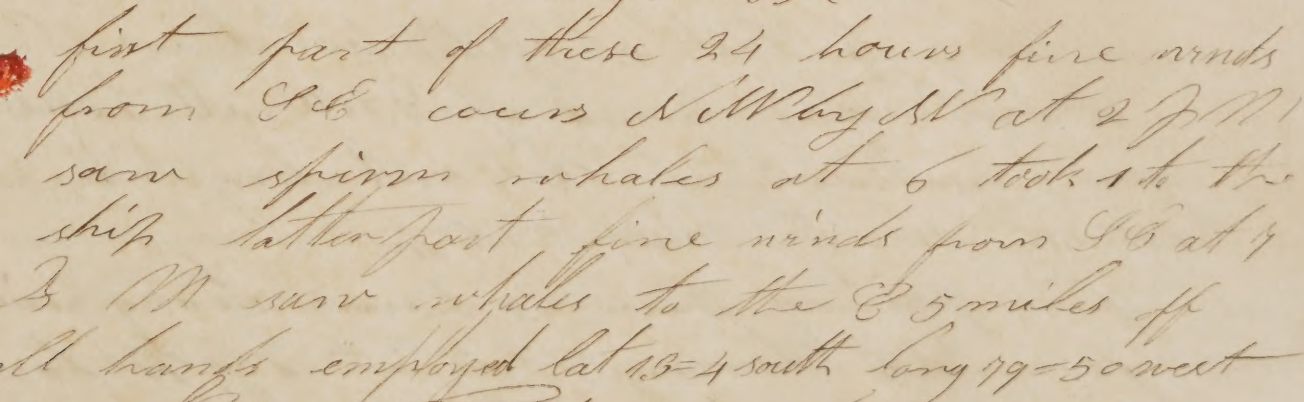 first part of these 24 hours fine winds
from SE cours NW by W at 2 P M
saw spirm whales at 6 took 1 to the
ship latter part fine winds from SE at 7
M saw whales to the E 5 miles off
all hands employed lat 13=4 south long 79=50 west